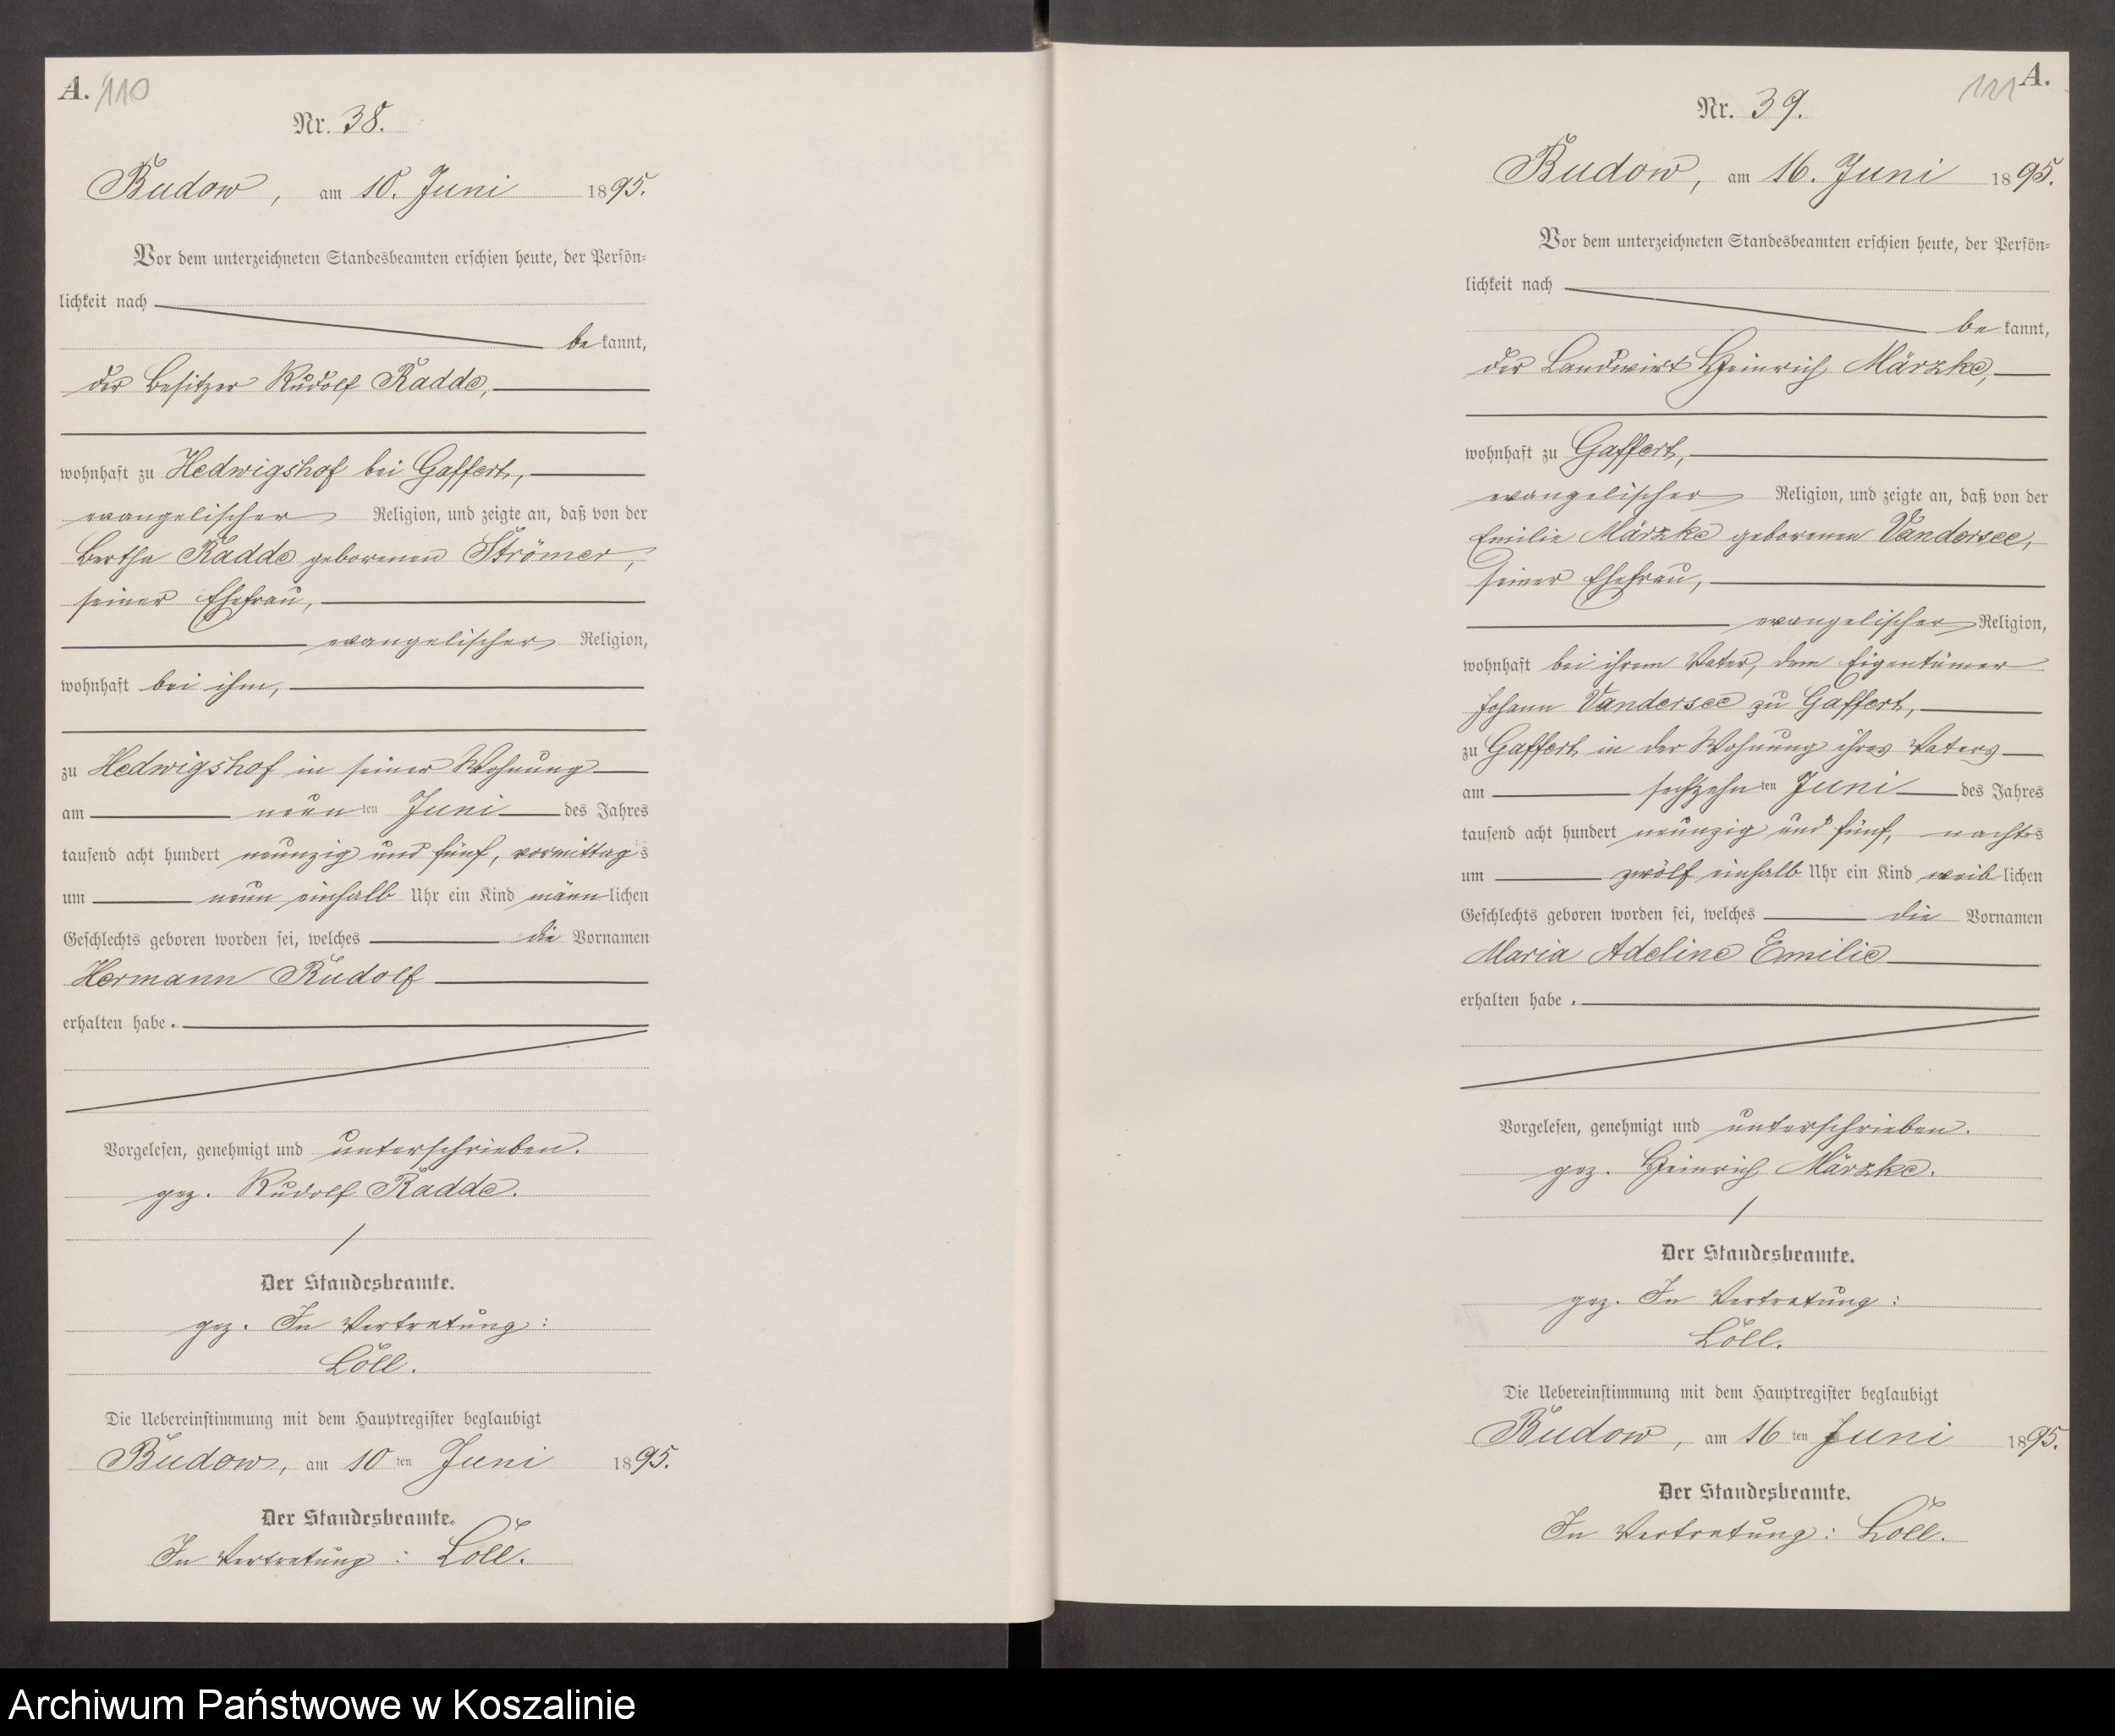 A. 110
Nr. 38.
Budow, am 10. Juni 1895.
Vor dem unterzeichneten Standesbeamten erschien heute, der Persön-
lichkeit nach
be kannt,
der Besitzer Rudolf Radde,
wohnhaft zu Hedwigshof bei Gaffert,
evangelischer Religion, und zeigte an, daß von der
Bertha Radde geborenen Strömer,
seiner Ehefrau,
evangelischer Religion,
wohnhaft bei ihm,
zu Hedwigshof in seiner Wohnung
am neun ten Juni des Jahres
tausend acht hundert neunzig und fünf, vormittag s
um neun einhalb Uhr ein Kind männ lichen
Geschlechts geboren worden sei, welches die Vornamen
Hermann Rudolf
erhalten habe.
Vorgelesen, genehmigt und unterschrieben.
gez. Rudolf Radde.
Der Standesbeamte.
gez. In Vertretung:
Löll.
Die Uebereinstimmung mit dem Hauptregister beglaubigt
Budow, am 10 ten Juni 1895.
Der Standesbeamte.
In Vertretung: Löll.
111 A.
Nr. 39.
Budow, am 16. Juni 1895.
Vor dem unterzeichneten Standesbeamten erschien heute, der Persön-
lichkeit nach
be kannt,
der Landwirt Heinrich Märzke,
wohnhaft zu Gaffert,
evangelischer Religion, und zeigte an, daß von der
Emilie Märzke geborenen Vandersee,
seiner Ehefrau,
evangelischer Religion,
wohnhaft bei ihrem Vater, dem Eigentümer
Johann Vandersee zu Gaffert,
zu Gaffert in der Wohnung ihres Vaters
am sechzehn ten Juni des Jahres
tausend acht hundert neunzig und fünf, nachts
um zwölf einhalb Uhr ein Kind weib lichen
Geschlechts geboren worden sei, welches die Vornamen
Maria Adeline Emilie
erhalten habe.
Vorgelesen, genehmigt und unterschrieben.
gez. Heinrich Märzke.
Der Standesbeamte.
gez. In Vertretung:
Löll.
Die Uebereinstimmung mit dem Hauptregister beglaubigt
Budow, am 16 ten Juni 1895.
Der Standesbeamte.
In Vertretung: Löll.
Archiwum Państwowe w Koszalinie